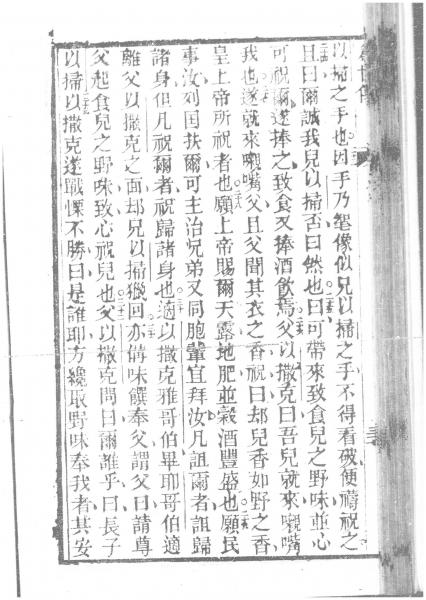 以掃之手也因手乃髦像似兄以掃之手不得看破使禱祝之
且曰爾誠我兒以掃否曰然也曰可帶來致食兒之野味並心
可祝爾遂捧之致食又捧酒飲焉父以撒克曰吾兒就來嚫嘴
我也遂就來嚫嘴父且父聞其衣之香祝曰却兒香如野之香
皇上帝所祝者也願上帝賜爾天露地肥並穀酒豐盛也願民
事汝列囯扶爾可主治兄弟又同胞輩宜拜汝凡詛爾者詛歸
諸身但凡祝爾者祝歸諸身也適以撒克祝雅哥伯畢耶哥伯適
離父以撒克之面却兄以掃獵回亦備味饌奉父謂父曰請尊
父起食兒之野味致心祝兒也父以撒克問曰爾誰乎曰長子
以掃以撒克遂戰慄不勝曰是誰耶方纔取野味奉我者其安